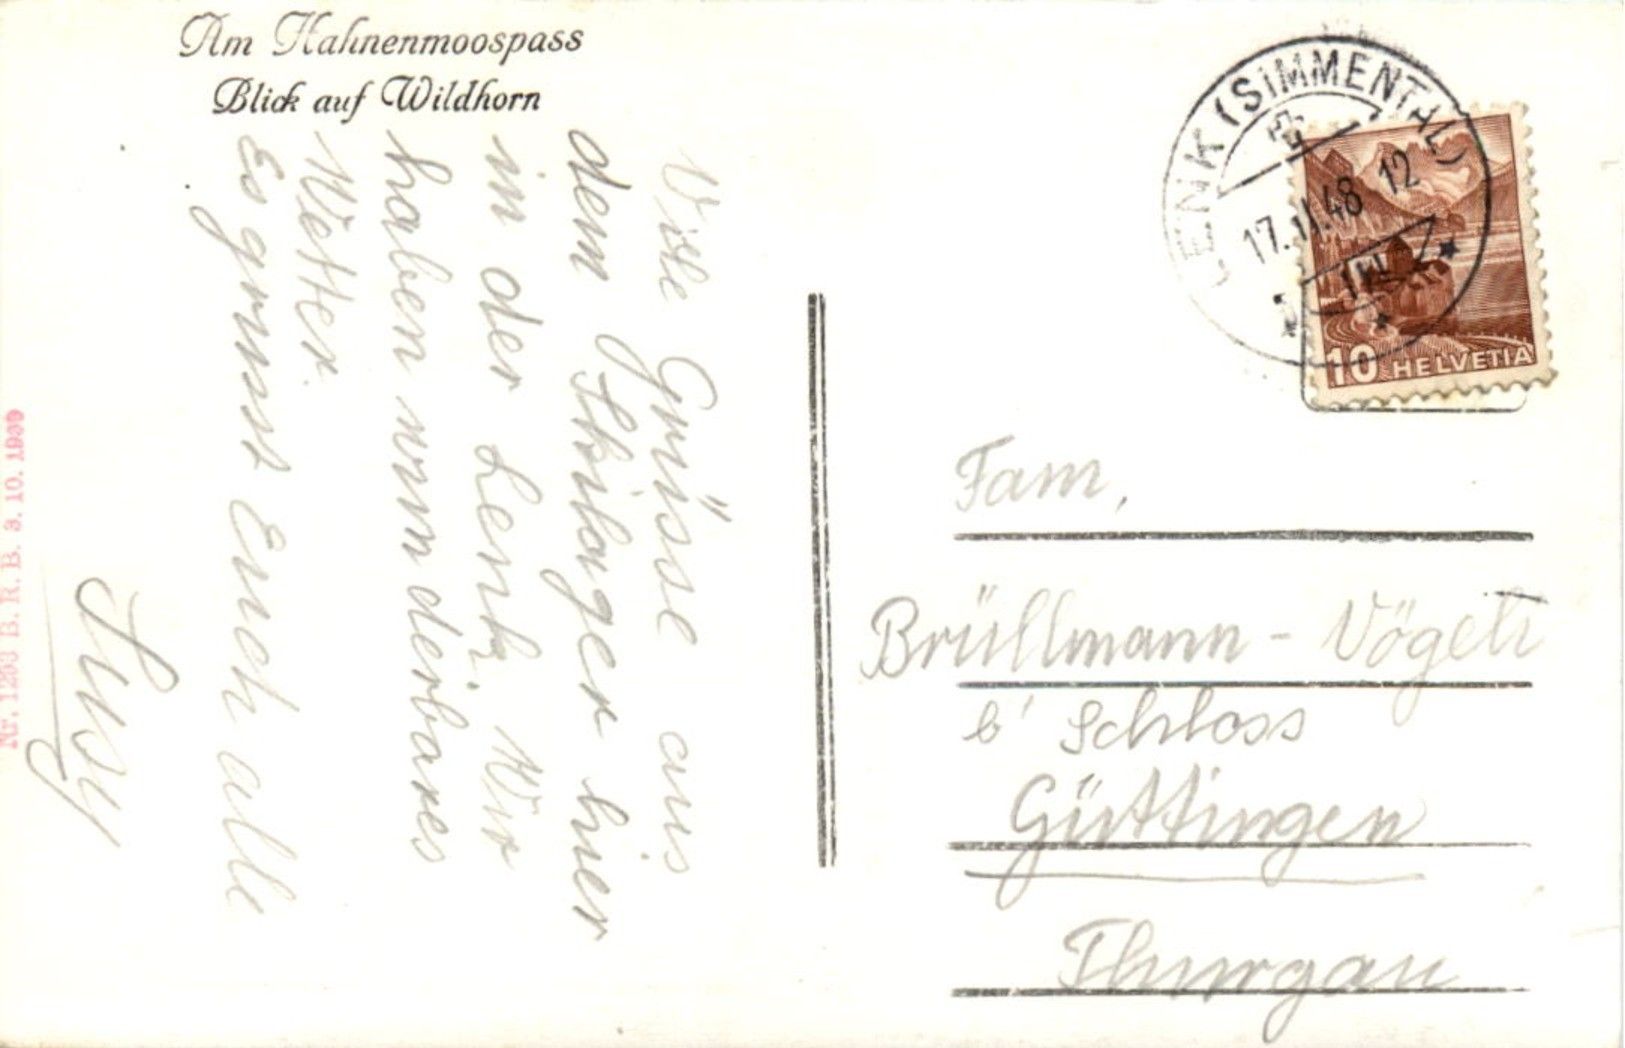 Am Hahnenmoospass
Blick auf Wildhorn
Viele Grüsse aus
dem Skilager hier
in der Lenk. Wir
haben wunderbares
Wetter.
Es grüsst Euch alle
Susy
Nr. 1293 B. R. B. 3. 10. 1939
LENK (SIMMENTAL)
17.II.48 12
10 HELVETIA
Fam,
Brüllmann - Vögeli
b' Schloss
Güttingen
Thurgau